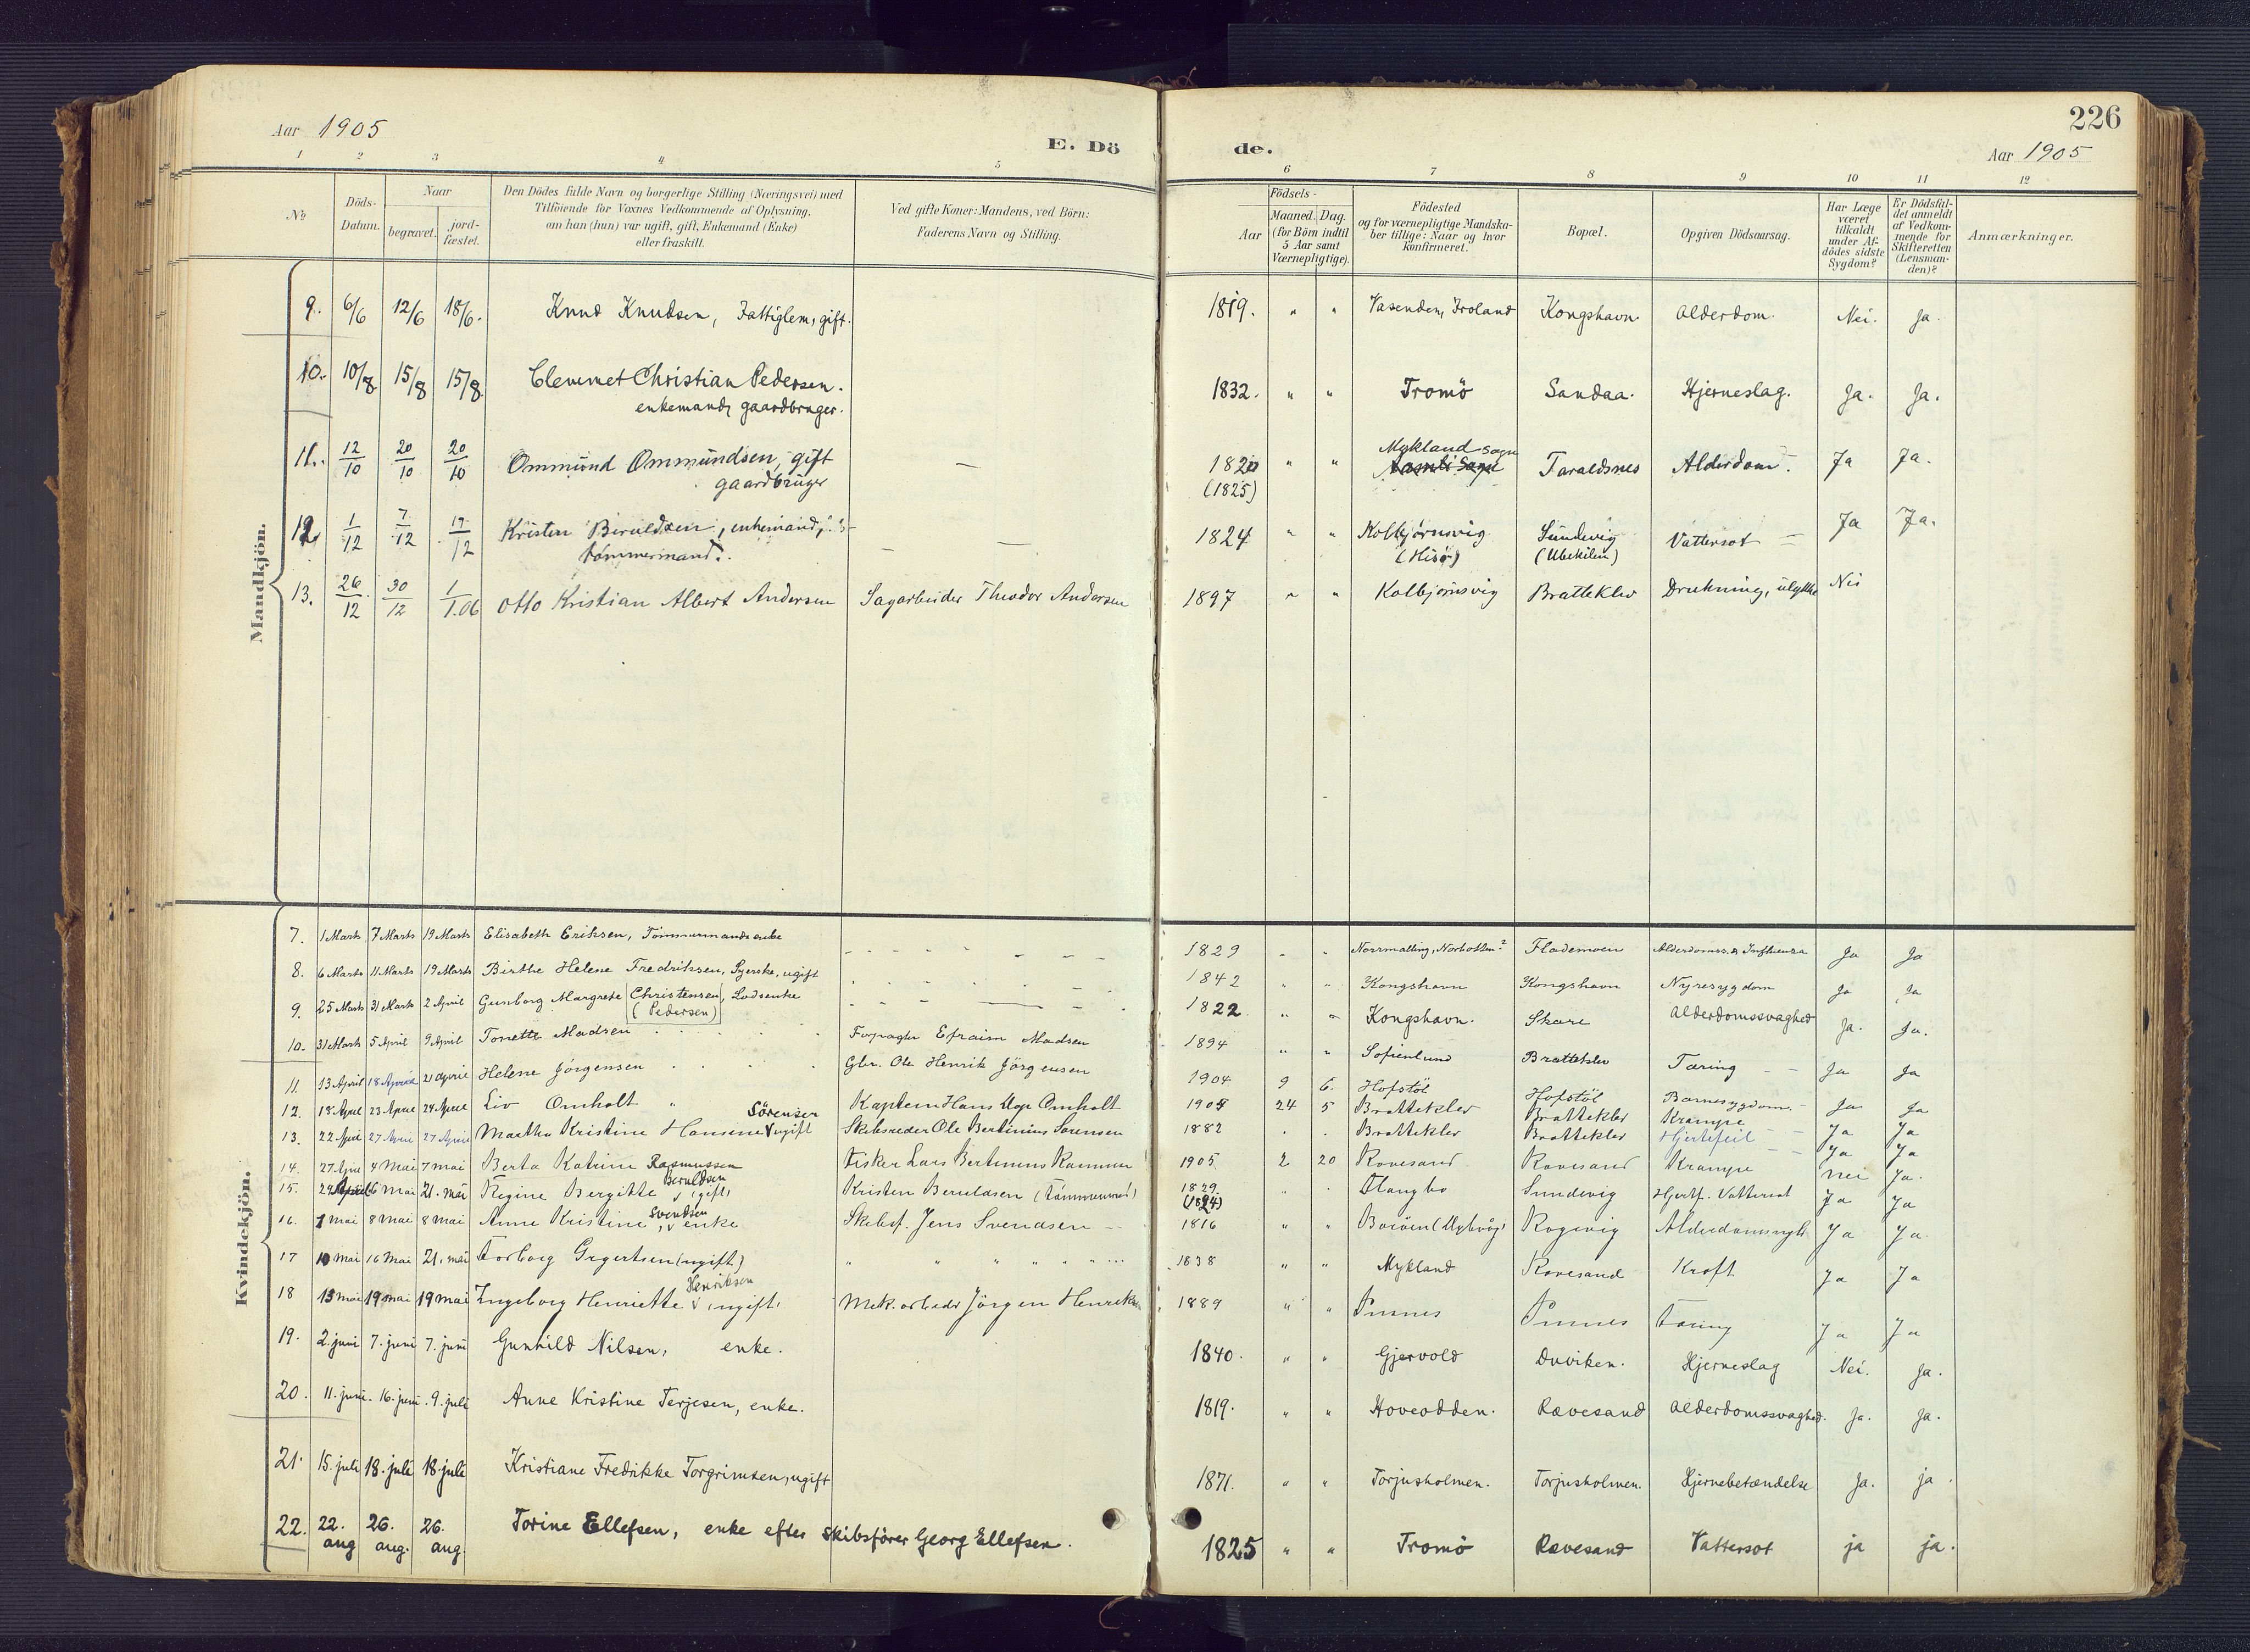 226
Aar 1905
E. Dö de.
Aar 1905
1 2 3 4 5 6 7 8 9 10 11 12
No
Döds-
Datum.
Naar
begravet.
jord-
fæstet.
Den Dödes fulde Navn og borgerlige Stilling (Næringsvei) med
Tilföiende for Voxnes Vedkommende af Oplysning,
om han (hun) var ugift, gift, Enkemand (Enke)
eller fraskilt.
Ved gifte Koner: Mandens, ved Börn:
Faderens Navn og Stilling.
Födsels-
Aar
Maaned. Dag.
(for Börn indtil
5 Aar samt
Værnepligtige).
Födested
og for værnepligtige Mandska-
ber tillige: Naar og hvor
konfirmeret.
Bopæl.
Opgiven Dödsaarsag.
Har Læge
været
tilkaldt
under Af-
dödes sidste
Sygdom?
Er Dödsfal-
det anmeldt
af Vedkom-
mende for
Skifteretten
(Lensman-
den)?
Anmærkninger.
Mandkjön.
9. 6/6 12/6 18/6. Knud Knudsen, Fattiglem, gift. 1819. " " Vasenden, Froland Kongshavn. Alderdom. Nei. Ja.
10. 10/8 15/8 15/8. Clemmet Christian Pedersen. 1832. " " Tromö Sandaa. Hjerneslag. Ja. Ja.
enkemand, gaardbruger.
11. 12/10 20/10 20/10 Ommund Ommundsen, gift — 1820 " " Mykland sogn Taraldsnes Alderdom. Ja Ja.
gaardbruger (1825)
12. 1/12 7/12 17/12 Kristen Beruldsen, enkemand, — — 1824 " " Kolbjörnsvig Sundevig Vattersot — Ja Ja.
tömmermand. (Hisö) (Ubekilen)
13. 26/12 30/12 1/1.06 Otto Kristian Albert Andersen Sagarbeider Theodor Andersen 1897 " " Kolbjörnsvig Bratteklev Drukning, ulykke Nei
Kvindekjön.
7. 1 Marts 7 Marts 19 Marts Elisabeth Eriksen, Tömmermands enke 1829 " " Norrmalling, Norbotten? Flademoen Alderdomss. & Influenza Ja Ja
8. 6 Marts 11 Marts 19 Marts Birthe Helene Fredriksen, Syerske, ugift 1842 " " Kongshavn Kongshavn Nyresygdom Ja Ja
9. 25 Marts 31 Marts 2 April Gunborg Margrete (Christensen), Lodsenke 1822 " " Kongshavn. Skare Alderdomssvaghed Ja. Ja.
(Pedersen)
10. 31 Marts 5 April 9 April Tonette Madsen Efraim Madsen 1894 " " Sofienlund Bratteklev Tæring Ja Ja
11. 13 April 18 April 21 April Helene Jörgensen Gbr. Ole Henrik Jörgensen 1904 9 6. Hofstöl Hofstöl Barnesygdom. Ja Ja
12. 18 April 23 April 24 April Liv Omholt Kaptein Hans Aage Omholt 1905 24 5 Bratteklev Bratteklev Krampe Ja Ja
13. 22 April 27 April 27 April Martha Kristine Hansine Sörensen ugift Skibsreder Ole Bertinius Sörensen 1882 " " Bratteklev Bratteklev Hjertefeil Ja Ja
14. 27 April 4 Mai 7 mai Berta Katrine Rasmussen Fisker Lars Bertinius Rasmussen 1905 2 20 Ravesand Ravesand Krampe nei Ja.
15. 29 April 6 Mai 21. mai Regine Bergitte Beruldsen (gift) Kristen Beruldsen (Tömmermand) 1829 " " Flangbo Sundevig Hjertf. Vattersot Ja Ja
(1824)
16. 1 mai 8 mai 8 mai Anne Kristine Svendsen, enke Skibsf. Jens Svendsen 1816 " " Boröen (Dybvåg) Rogevig Ja Ja.
17 10 mai 16 Mai 21. mai Torborg Gregertsen (ugift) 1838 " " Mykland Ravesand Kræft Ja Ja
18 13 mai 19 mai 19 mai Ingeborg Henriette Henriksen, ugift. Mek. arbeider Jörgen Henriksen 1889 " " Pusnes Pusnes Tæring Ja Ja
19. 2. juni 7. juni 7. juni Gunhild Nilsen, enke. 1840. " " Gjervold Duviken. Hjerneslag Nei. Ja.
20. 11. juni. 16. juni. 9. juli Anne Kristine Terjesen, enke. 1819. " " Hoveodden. Rævesand Alderdomssvaghed. Ja. Ja.
21. 15. juli 18. juli 18. juli Kristiane Fredrikke Torgrimsen, ugift 1871. " " Torjusholmen. Torjusholmen. Hjernebetændelse Ja. ja.
22. 22. aug 26. aug. 26. aug. Torine Ellefsen, enke efter skibsförer Georg Ellefsen. 1825 " " Tromö Rævesand Vattersot ja ja.